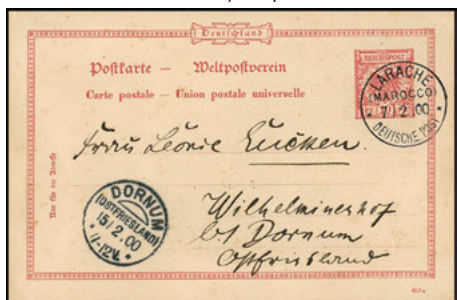 Deutschland
Postkarte — Weltpostverein
Carte postale — Union postale universelle
REICHSPOST
LARACHE
(MAROCCO)
7/2 00
DEUTSCHE POST
Frau Léonie Eucken.
Nur für die Adresse
DORNUM
(OSTFRIESLAND)
15/2.00
11-12V.
Wilhelmineshof
b/ Dornum
Ostfriesland